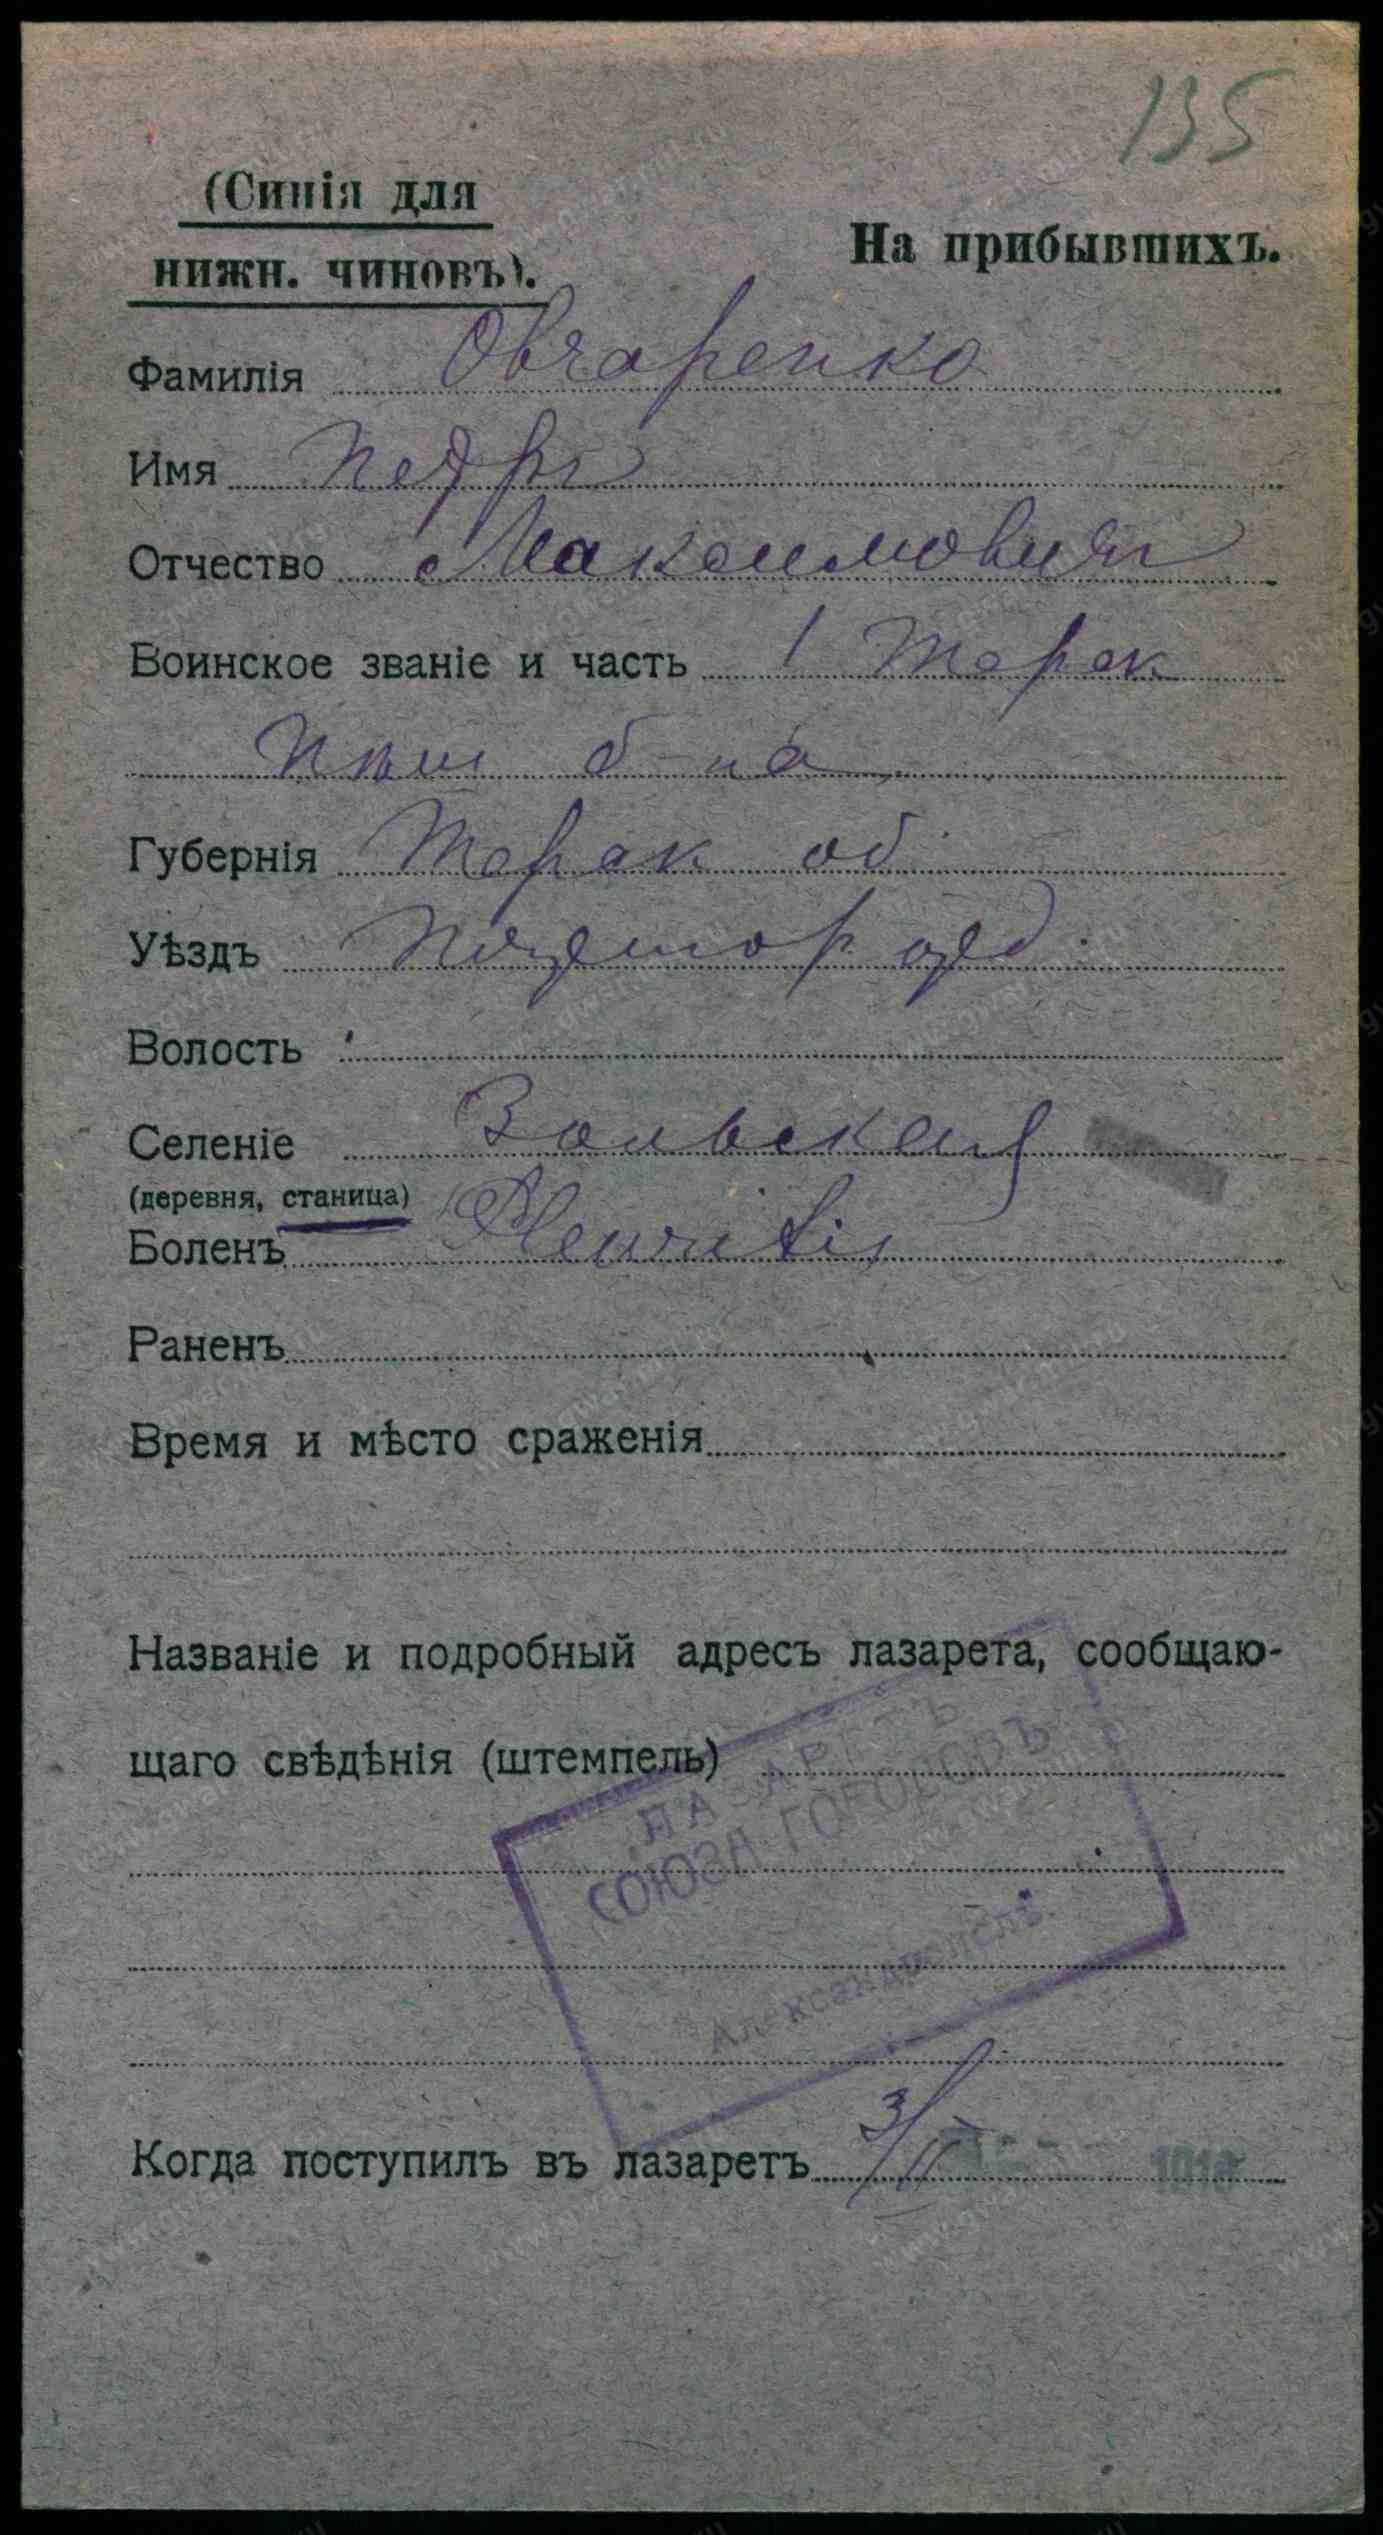 135
(Синія для
нижн. чиновъ).
На прибывшихъ.
Фамилія Овчаренко
Имя Петръ
Отчество Максимовичъ
Воинское званіе и часть 1 Терск
б-на
Губернія Терск об.
Уѣздъ
Волость
Селеніе Зольская
(деревня, станица)
Боленъ Pleuritis
Раненъ
Время и мѣсто сраженія
Названіе и подробный адресъ лазарета, сообщаю-
щаго свѣдѣнія (штемпель)
ЛАЗАРЕТЪ
СОЮЗА ГОРОДОВЪ
Александрополь
Когда поступилъ въ лазаретъ 3/II 1916